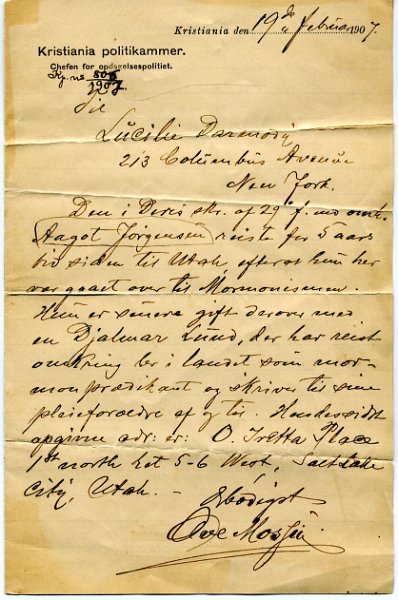 Kristiania den 19de februar 1907.
Kristiania politikammer.
Chefen for opdagelsespolitiet.
Kp. no 806
1907.
Til
Lucilie
213 Columbus Avenue
New York.
Den i Deres skr. af 29' f. md omh.
Aagot Jörgensen reiste for 5 aars
tid siden til Utah, efterat hun her
var gaaet over til Mormonismen.
Hun er senere gift derover med
en Hjalmar Lund, der har reist
omkring her i landet som mor-
mon prædikant og skriver til sine
pleieforældre af og til. Hendes sidst
opgivne adr. er: O. Tretta Place
1st north bet 5-6 West, Salt Lake
City, Utah. -
Ærbödigst
Ove